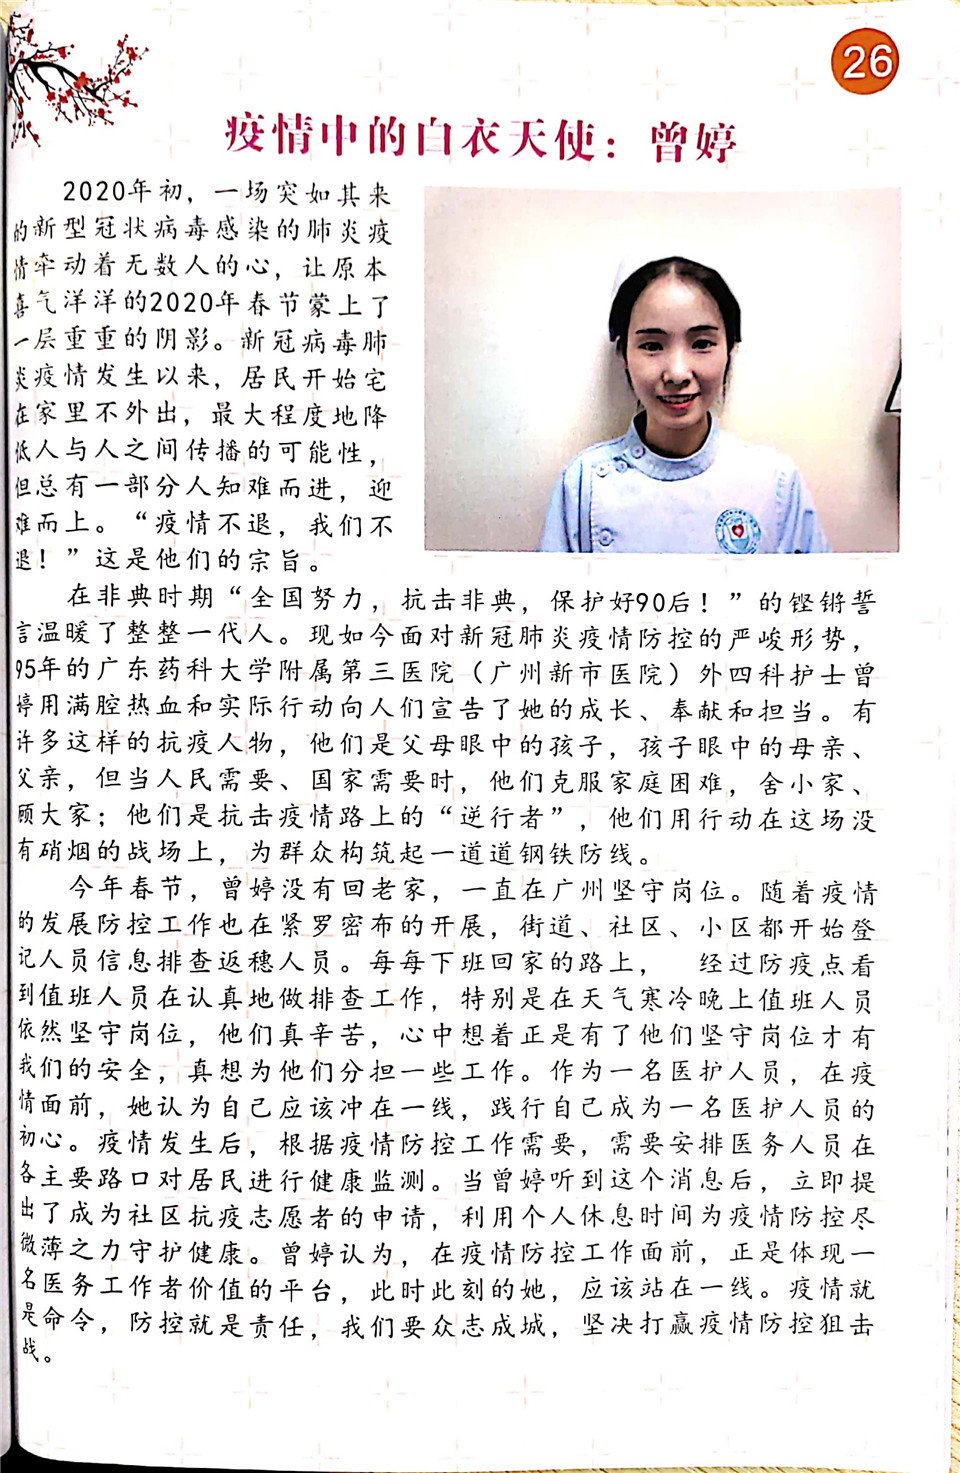 26
疫情中的白衣天使：曾婷
2020年初，一场突如其来
的新型冠状病毒感染的肺炎疫
情牵动着无数人的心，让原本
喜气洋洋的2020年春节蒙上了
一层重重的阴影。新冠病毒肺
炎疫情发生以来，居民开始宅
在家里不外出，最大程度地降
低人与人之间传播的可能性，
但总有一部分人知难而进，迎
难而上。“疫情不退，我们不
退！”这是他们的宗旨。
在非典时期“全国努力，抗击非典，保护好90后！”的铿锵誓
言温暖了整整一代人。现如今面对新冠肺炎疫情防控的严峻形势，
95年的广东药科大学附属第三医院（广州新市医院）外四科护士曾
婷用满腔热血和实际行动向人们宣告了她的成长、奉献和担当。有
许多这样的抗疫人物，他们是父母眼中的孩子，孩子眼中的母亲、
父亲，但当人民需要、国家需要时，他们克服家庭困难，舍小家、
顾大家；他们是抗击疫情路上的“逆行者”，他们用行动在这场没
有硝烟的战场上，为群众构筑起一道道钢铁防线。
今年春节，曾婷没有回老家，一直在广州坚守岗位。随着疫情
的发展防控工作也在紧罗密布的开展，街道、社区、小区都开始登
记人员信息排查返穗人员。每每下班回家的路上， 经过防疫点看
到值班人员在认真地做排查工作，特别是在天气寒冷晚上值班人员
依然坚守岗位，他们真辛苦，心中想着正是有了他们坚守岗位才有
我们的安全，真想为他们分担一些工作。作为一名医护人员，在疫
情面前，她认为自己应该冲在一线，践行自己成为一名医护人员的
初心。疫情发生后，根据疫情防控工作需要，需要安排医务人员在
各主要路口对居民进行健康监测。当曾婷听到这个消息后，立即提
出了成为社区抗疫志愿者的申请，利用个人休息时间为疫情防控尽
微薄之力守护健康。曾婷认为，在疫情防控工作面前，正是体现一
名医务工作者价值的平台，此时此刻的她，应该站在一线。疫情就
是命令，防控就是责任，我们要众志成城，坚决打赢疫情防控狙击
战。